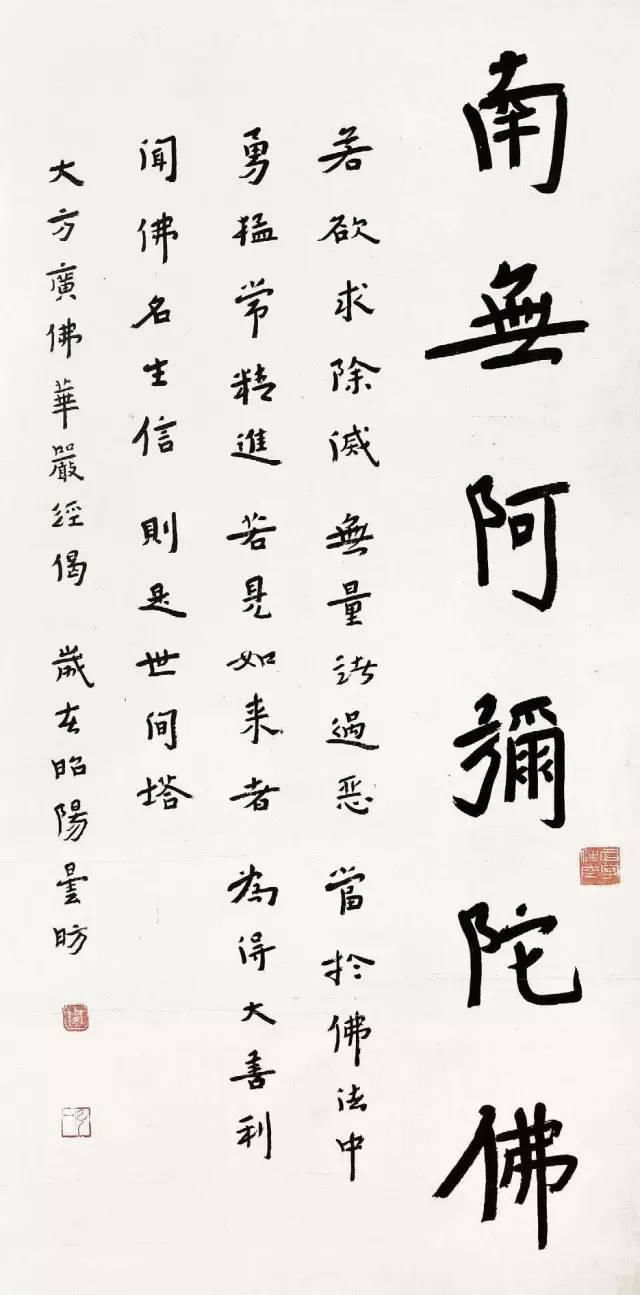 南無阿彌陀佛
若欲求除滅 無量諸過惡 當於佛法中
勇猛常精進 若見如來者 為得大善利
聞佛名生信 則是世間塔
大方廣佛華嚴經偈 歲在昭陽曇昉